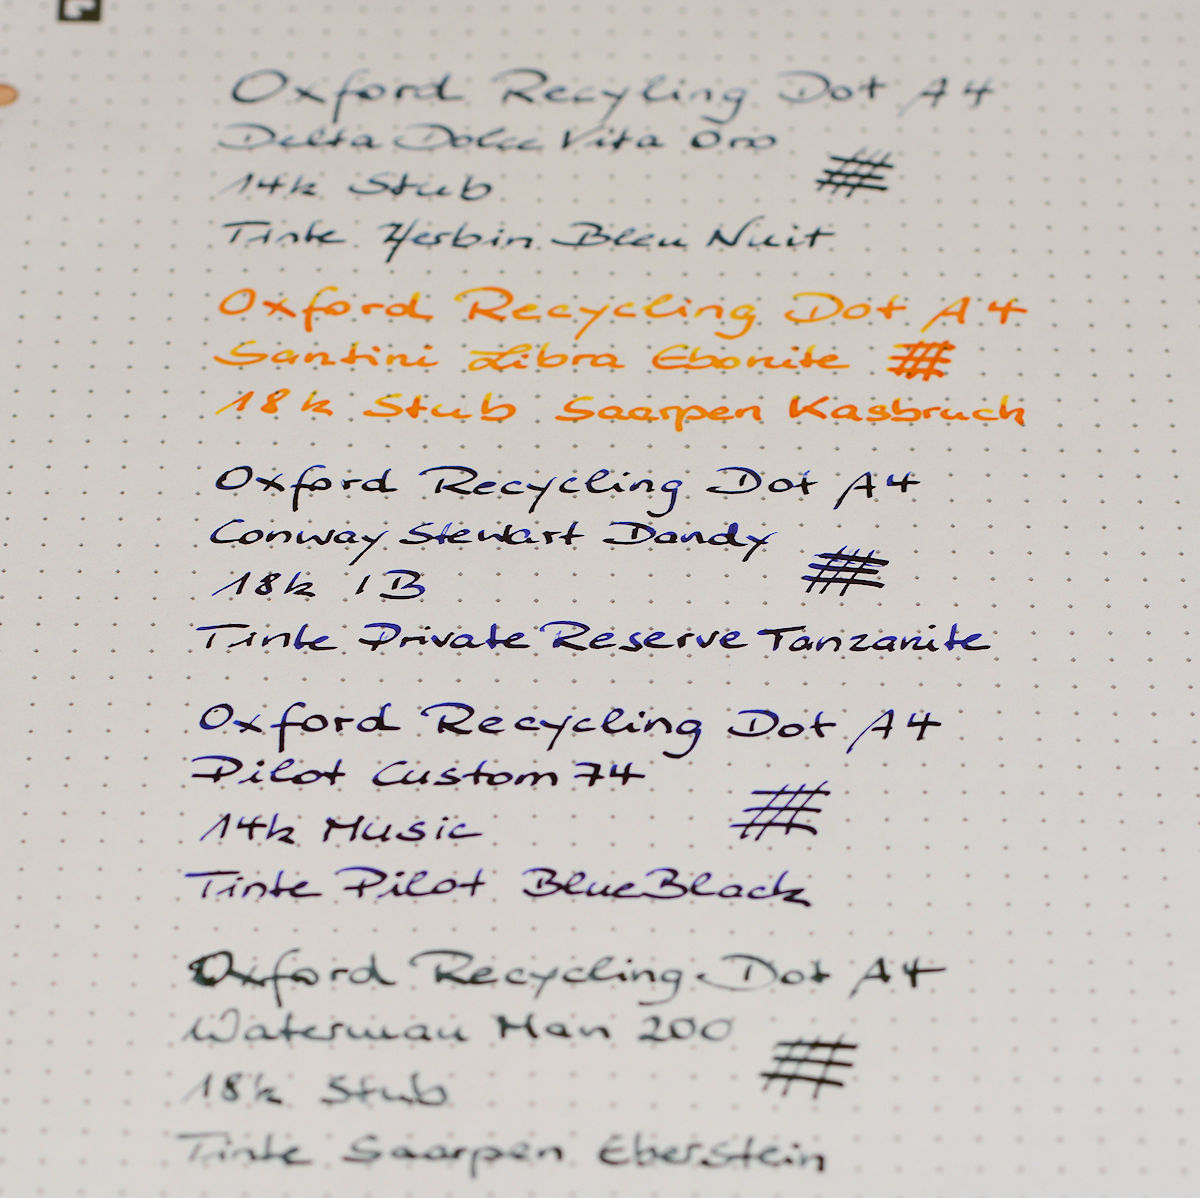 Oxford Recyling Dot A4
Delta Dolce Vita Oro
14k Stub
Tinte Herbin Bleu Nuit
Oxford Recycling Dot A4
Santini Libra Ebonite
18k Stub Saarpen Kasbruch
Oxford Recycling Dot A4
Conway Stewart Dandy
18k IB
Tinte Private Reserve Tanzanite
Oxford Recycling Dot A4
Pilot Custom 74
14k Music
Tinte Pilot BlueBlack
Oxford Recycling Dot A4
Waterman Man 200
18k Stub
Tinte Saarpen Eberstein